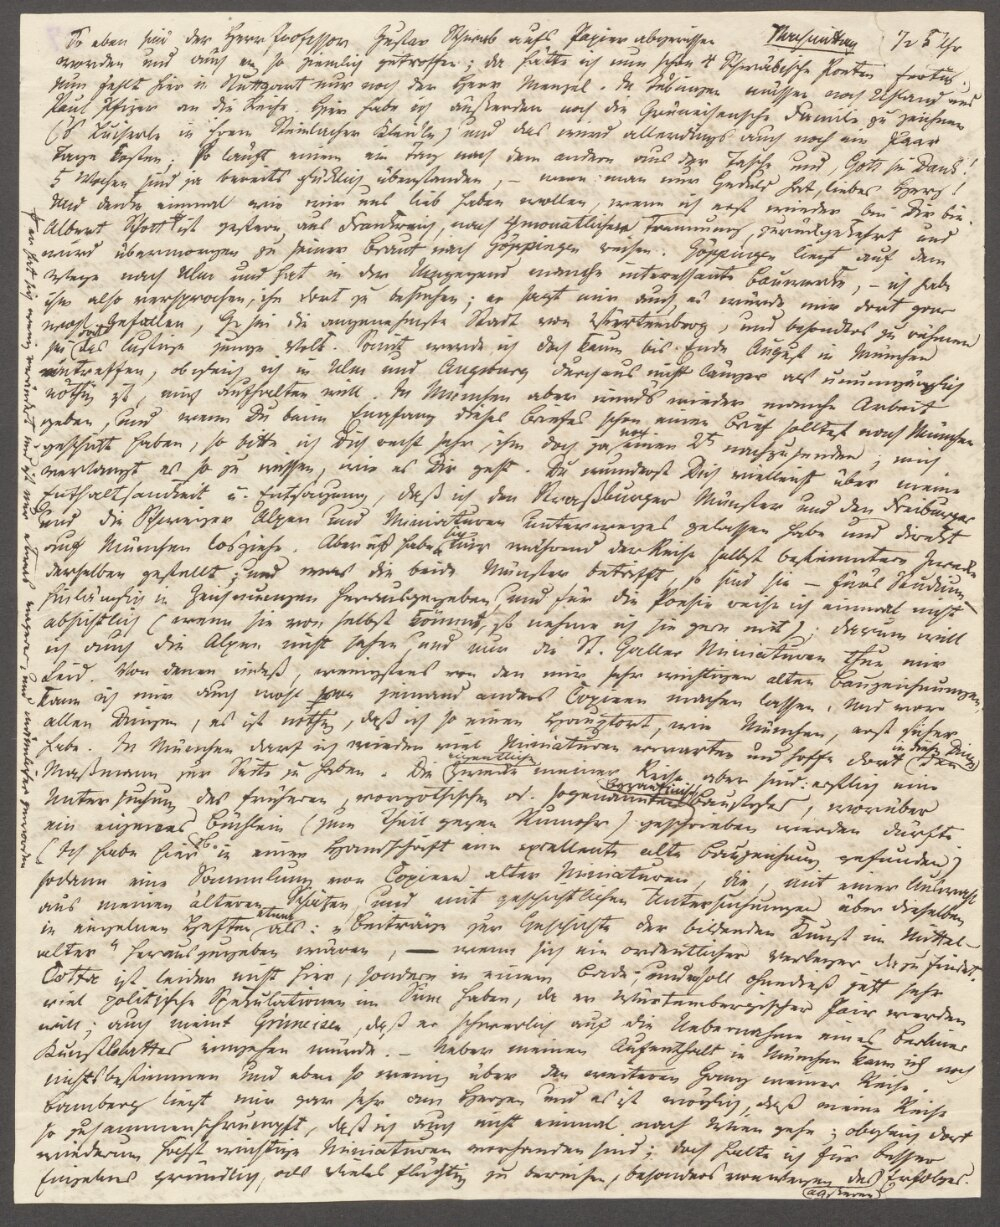 So eben sind der Herr Professor Gustav Schwab aufs Papier abgerissen Nachmittag ½ 5 Uhr
worden und auch so ziemlich getroffen; da hätte ich nun schon 4 Schwäbische Poeten fertig.
Nun fehlt hier in Stuttgart nur noch der Herr Menzel. In Tübingen müssen noch Uhland und
Paul Pfizer an die Reihe. Hier habe ich außerdem noch die Grüneisensche Familie zu zeichnen
in ihrem Steinlacher und das wird allerdings auch noch ein Paar
Tage kosten; So läuft einem ein Tag nach dem andern aus der Tasche und, Gott sei Dank!
5 Wochen sind ja bereits glücklich überstanden, – wenn man nur Geduld hat, liebes Herz!
Und denke einmal wie wir uns lieb haben wollen, wenn ich erst wieder bei Dir bin.
Albert Schott ist gestern aus Frankreich, nach monatlicher Trennung, zurückgekehrt und
wird übermorgen zu seiner Braut nach Göppingen reisen. Göppingen liegt auf dem
Wege nach Ulm und hat in der Umgegend manche interessante Bauwerke, – ich habe
ihm also versprochen, ihn dort zu besuchen; er sagt mir auch es würde mir dort ganz
wohl gefallen, es sei die angenehmste Stadt von Würtemberg, und besonders zu rühmen
sei dort das lustige junge Volk. Somit werde ich doch kaum bis Ende August in München
eintreffen, obgleich ich in Ulm und Augsburg durchaus nicht länger als unumgänglich
nöthig ist, mich aufhalten will. In München aber wirds wieder manche Arbeit
geben, und wenn Du beim Empfang dieses Briefes schon einen Brief solltest nach München
geschickt haben, so bitte ich Dich recht sehr, ihm doch ja noch einen 2t nachzusenden; mich
verlangt es so zu wissen, wie es Dir geht. Du wunderst Dich vielleicht über meine
Enthaltsamkeit u. Entsagung, daß ich den Straßburger Münster und den Freiburger
und die Schweizer Alpen und Miniaturen unterweges gelassen habe und direkt
auf München losziehe. Aber ich habe mir während der Reise selbst bestimmtere Zwecke
derselben gestellt; und was die beide Münster betrifft, so sind sie – fürs Studium
hinlänglich in Zeichnungen herausgegeben, und für die Poesie reise ich einmal nicht
absichtlich (wenn sie von selbst kömmt, so nehme ich sie gern mit); darum will
ich auch die Alpen nicht sehen, und nur die St. Galler Miniaturen thun mir
Leid. Von denen indeß, wenigstens von den mir sehr wichtigen alten Bauzeichnungen,
kann ich mir auch wohl jemand anders Copieen machen lassen. Und vor
allen Dingen, es ist nöthig, daß ich so einen Hauptort, wie München, erst sicher
habe. In München darf ich wieder viel Miniaturen erwarten und hoffe dort in diesen Dingen den
Maßmann zur Seite zu haben. Die eigentlichen Zwecke meiner Reise aber sind: erstlich eine
Untersuchung des früheren, vorgothischen od. sogenannten byzantinischen Baustyles, worüber
ein eigenes Büchlein (zum Theil gegen Rumohr) geschrieben werden dürfte
(Ich habe hier z.B. in einer Handschrift eine excellente alte Bauzeichnung gefunden);
sodann eine Sammlung von Copieen alter Miniaturen, die, mit einer Auswahl
aus meinen älteren Schätzen, und mit geschichtlichen Untersuchungen über dieselben
in einzelnen Heften etwa als: „Beiträge zur Geschichte der bildenden Kunst im Mittel-
alter“ herausgegeben wären, – wenn sich ein ordentlicher Verleger dazu findet.
Cotta ist leider nicht hier, sondern in einem Bade, und soll ohnedieß jetzt sehr
viel politische Spekulationen im Sinn haben, da er Würtembergischer Pair werden
will; auch meint Grüneisen, daß er schwerlich auf die Uebernahme eines Berliner
Kunstblattes eingehen würde. – Ueber meinen Aufenthalt in München kann ich noch
nichts bestimmen und eben so wenig über den weiteren Gang meiner Reise.
Bamberg liegt mir gar sehr am Herzen und es ist möglich, daß meine Reise
so zusammenschrumpft, daß ich auch nicht einmal nach Wien gehe; obgleich dort
wiederum höchst wichtige Miniaturen vorhanden sind; doch halte ich für besser
Einzelnes gründlich, als Vieles flüchtig zu bereisen, besonders von wegen des Erfolges.